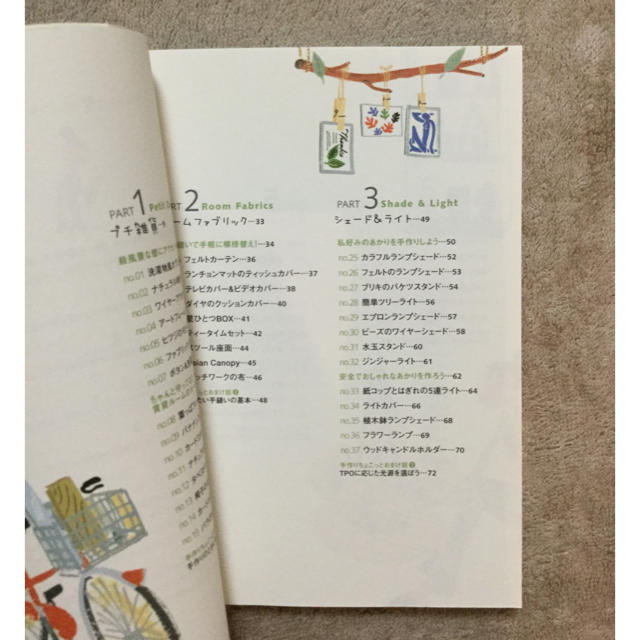 PART 1 Petit
プチ雑貨
no.01 洗濯物
no.02 ナチュラル
no.03 ワイヤー
no.04 アートフレ
no.05
no.06 ファブリッ
no.07 ボタン
ちゃんと
賃貸ルーム
no.08
no.09 バナナ
no.10 カード
no.11 ナチュ
no.12
no.13
no.14
no.15
PART 2 Room Fabrics
ームファブリック…33
いて手軽に模様替え!…34
フェルトカーテン…36
ランチョンマットのティッシュカバー…37
テレビカバー&ビデオカバー…38
ダイヤのクッションカバー…40
ひとつBOX…41
ティータイムセット…42
ツール座面…44
sian Canopy…45
ッチワークの布…46
とおまけ話 2
たい手縫いの基本…48
Thanks
PART 3 Shade & Light
シェード&ライト…49
私好みのあかりを手作りしよう…50
no.25 カラフルランプシェード…52
no.26 フェルトのランプシェード…53
no.27 ブリキのバケツスタンド…54
no.28 簡単ツリーライト…56
no.29 エプロンランプシェード…57
no.30 ビーズのワイヤーシェード…58
no.31 水玉スタンド…60
no.32 ジンジャーライト…61
安全でおしゃれなあかりを作ろう…62
no.33 紙コップとはぎれの5連ライト…64
no.34 ライトカバー…66
no.35 植木鉢ランプシェード…68
no.36 フラワーランプ…69
no.37 ウッドキャンドルホルダー…70
手作りちょこっとおまけ話 3
TPOに応じた光源を選ぼう…72